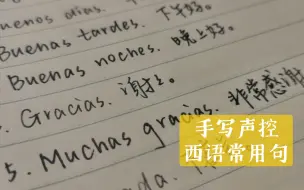 buenos días. 下午好。
Buenas tardes.
Buenas noches. 晚上好。
Gracias. 谢谢。
5. Muchas gracias. 非常感谢
nada.
手写声控
西语常用句